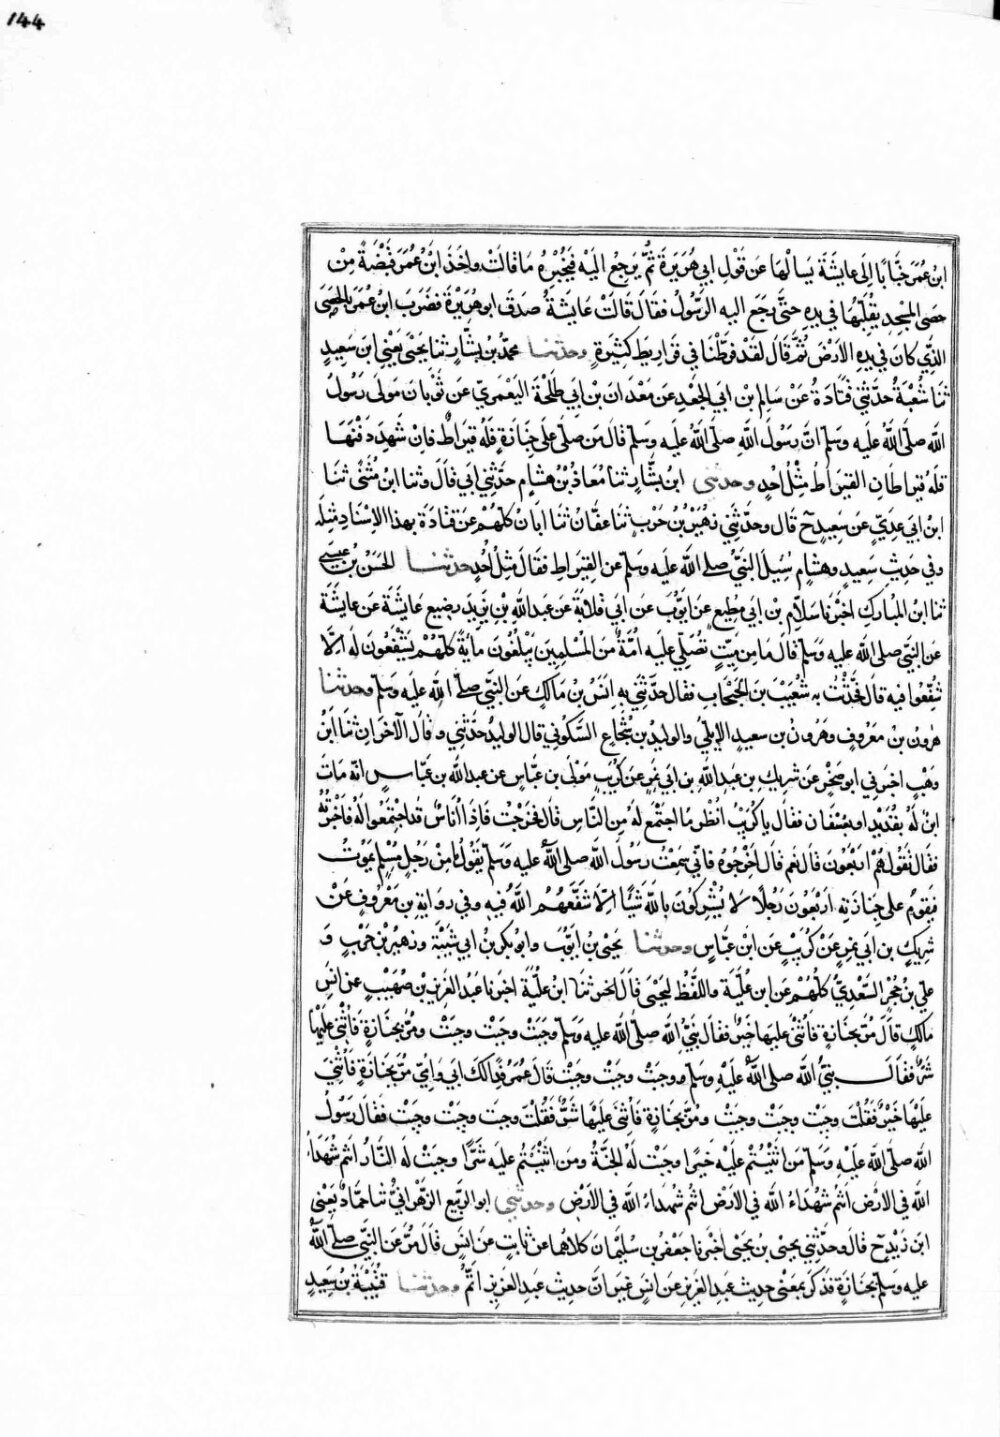 144
ابن عُمَرَ خَبَّابًا اِلَى عايشَةَ يَسالُهَا عَن قَولِ ابي هُرَيرَةَ ثُمَّ يَرجِعُ اِلَيْه فيُخْبِرُهُ مَا قالَتْ واخَذَ ابْنُ عُمَرَ قَبْضَةً مِنْ
حصَى المسْجدِ يُقَلِّبُهَا في يدِهِ حتَّى رَجَع اليه الرّسُولُ فقَالَ قَالَتْ عَايشَةُ صدَقَ ابو هُرَيْرَةَ فضَرَبَ ابنُ عُمَرَ بالحَصَى
الذِّي كانَ في يدِهِ الاَرضَ ثُمَّ قالَ لقَدْ فرَّطْنَا في قرَاريطَ كثِيرَةٍ وحدثنا محمدُ بنُ بشَّارٍ ثنا يَحْيَى يَعْنِي ابنَ سَعِيدٍ
ثنا شُعْبَةُ حدَّثَنِي قَتَادَةُ عَنْ سَالِم بْنِ ابي الجَعْدِ عَن مَعْدَانَ بْنِ ابي طَلْحَةَ اليَعْمرِيّ عَن ثَوْبَانَ مَولَى رَسُولُ
الله صَلّى اللهُ علَيه وسَلّم انَّ رَسُولَ الله صلّى اللهُ عليه وسلّم قالَ مَن صلّى علَى جَنَازةٍ فلَهُ قِيرَاطٌ فاِنْ شَهِدَ دَفْنَهَا
فلَهُ قيراطَانِ القيرَاطُ مِثْلُ اُحُدٍ وحدثنى ابنُ بشَّارٍ ثنا مُعَاذُ بْنُ هشَامٍ حَدّثنِي ابي قالَ وثنا ابنُ مُثَنّى ثنا
ابن ابي عَدِيّ عَن سَعِيدٍ ح قال وحدّثنِي زهَيْرُ بْنُ حَرْبٍ ثنا عفَّانُ ثنا ابَانُ كلّهُمْ عَن قتَادَةَ بهذا الاسْنَادِ مثِلَه
وفي حَدِيث سَعِيدٍ وهشَامٍ سُيِلَ النبيُّ صلى الله عليه وسلّم عَن القِيرَاطِ فقَالَ مثِلُ اُحُدٍ حدثنا الحَسَنُ بْنُ عيسَى
ثنا ابنُ المُبَاركِ اخبَرنَا سَلاّم بن ابي مُطِيع عَن ايّوبَ عَن ابي قلابَةَ عَن عبدالله بْنِ يَزِيدَ رضِيعِ عَايشَةَ عَن عايشَةَ
عَنِ النبيّ صلى الله عليه وسَلّم قالَ مَا مِن مَيّتٍ تُصَلّي عليه اُمّةٌ منَ المُسْلمِينَ يَبْلغُونَ مايَةً كلّهُمْ يَشْفَعُونَ لهُ الاَّ
شُفّعُوا فيه قالَ فحدّثْتُ به شُعَيْبَ بنَ الحَبْحَابِ فقالَ حدّثنِي به انَسُ بْنُ مَالكٍ عَنِ النبّي صلى الله عليه وسَلّم وحدثنا
هرُونُ بنُ مَعرُوفٍ وهَرُونُ بن سعيدٍ الايلي والوليدُ بن شُجاعٍ السَّكُوني قال الوليدُ حَدثنِي وقالَ الآخَرانِ ثنا ابْنُ
وهْبٍ اخبَرني ابو صَخْرٍ عَن شريكِ بن عَبدِ اللهِ بن ابي نَمِرٍ عَن كُرَيْبٍ مَوْلى بن عبّاسٍ عن عبدالله بن عَبّاسٍ انّه مَاتَ
ابنٌ لَهُ بقُدَيْدٍ او بعُسْفانَ فقالَ يا كُرَيْبُ انُظُر مَا اجْتَمَع لهُ مِنَ النَّاسِ قالَ فخَرَجْتُ فَاِذَا اُنَاسٌ قدِ اجْتمَعُوا لَهُ فاخْبَرتُهُ
فقالَ تقُولُ هُمْ اربَعُونَ قالَ نعَم قالَ اخْرِجُوهُ فاني سَمِعْتُ رَسُولَ الله صلى الله عليه وَسَلّم يَقُولُ مَا مِنْ رَجُلٍ مُسْلمٍ يَمُوتُ
فيَقُومُ على جنَازَتِه اربَعُونَ رَجُلًا لاَ يُشْركُونَ باللهِ شيًا الاَّ شَفّعَهُمُ اللهُ فيهِ وفي روَايَة بنِ مَعْرُوفٍ عَنْ
شرِيكِ بنِ ابي نمِرٍ عَنْ كُرَيْبٍ عَن ابْن عَبَّاسٍ وحدثنا يَحيَى بنُ ايّوُبَ وابُو بَكرِ بنُ ابي شَيْبَةَ وزهيرُ بن حَرْبٍ وَ
علي بْنُ حُجْرٍ السَّعْدِيُّ كلُّهُمْ عَن ابن عُلَيَّةَ واللّفْظُ ليَحْيَى قالَ ثنا ابنُ عُليَّةَ اخبَرنا عَبدُ العَزِيز بْنُ صُهَيْبٍ عَن انَسِ بن
مالكٍ قَالَ مُرَّ بجَنَازةٍ فاُثْنَى عليهَا خَيرٌ فقالَ نبيُّ الله صلى الله عليه وسَلّم وجَبَتْ وجَبَتْ وجَبَتْ ومُرَّ بجَنَازةٍ فاُثْنَي علَيْها
شَرٌّ فقَالَ نبيُّ الله صلى اللهُ علَيْه وسَلّم وجَبَتْ وجَبَتْ وجَبَتْ قالَ عُمَرُ فِدًى لكَ ابي وَاُمّي مُرَّ بجَنَازةٍ فاُثْنِيَ
عليْهَا خَيْرٌ فقُلْتَ وجَبَتْ وجَبَتْ وجَبَتْ ومُرَّ بجَنازةٍ فاُثْنَى علَيْهَا شَرٌّ فقُلْتَ وجَبَت وجَبَتْ وجَبَتْ فقالَ رَسُولُ
الله صلى الله علَيْه وسَلّم مَن اثْنَيْتُم علَيْه خَيرًا وجبَتْ لهُ الجَنَّةُ ومَن اثْنَيْتُم علَيه شَرًّا وجبَتْ لَهُ النَّارُ انتُم شُهَدَاءُ
الله في الارْضِ انتُم شُهَدَاءُ الله في الارْضِ انتُم شُهَداءُ الله في الارْضِ وحدثنى ابو الربيع الزهْرَانيُّ ثنا حمَّادٌ يَعْنى
ابنَ زيْدٍ ح قالَ وحدّثنِي يحيَى بن يَحيَى اخبرنا جَعْفَرُ بن سُليْمَانَ كلاهُما عن ثَابتٍ عن انَسٍ قالَ مُرَّ عن النبّي صلّى اللهُ
عليه وسَلّم بجَنازةٍ فذكَر بمَعنَى حديثِ عبدِ العَزيزِ عَن انسٍ غيرَ انَّ حَدِيثَ عَبدِ العزيزِ اتَمُّ وحدثنا قُتَيْبَةُ بْنُ سَعِيدٍ